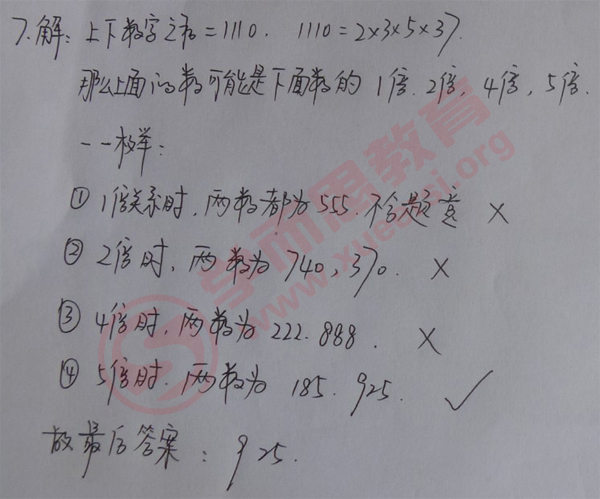 7.解：上下数字之和=1110. 1110=2×3×5×37.
那么上面的数可能是下面数的1倍.2倍,4倍,5倍.
一一枚举：
① 1倍关系时,两数都为555.不合题意 ×
② 2倍时,两数为740,370. ×
③ 4倍时,两数为222.888. ×
④ 5倍时.两数为185.925. ✓
故最后答案：925.
学而思教育
www.xuersi.org